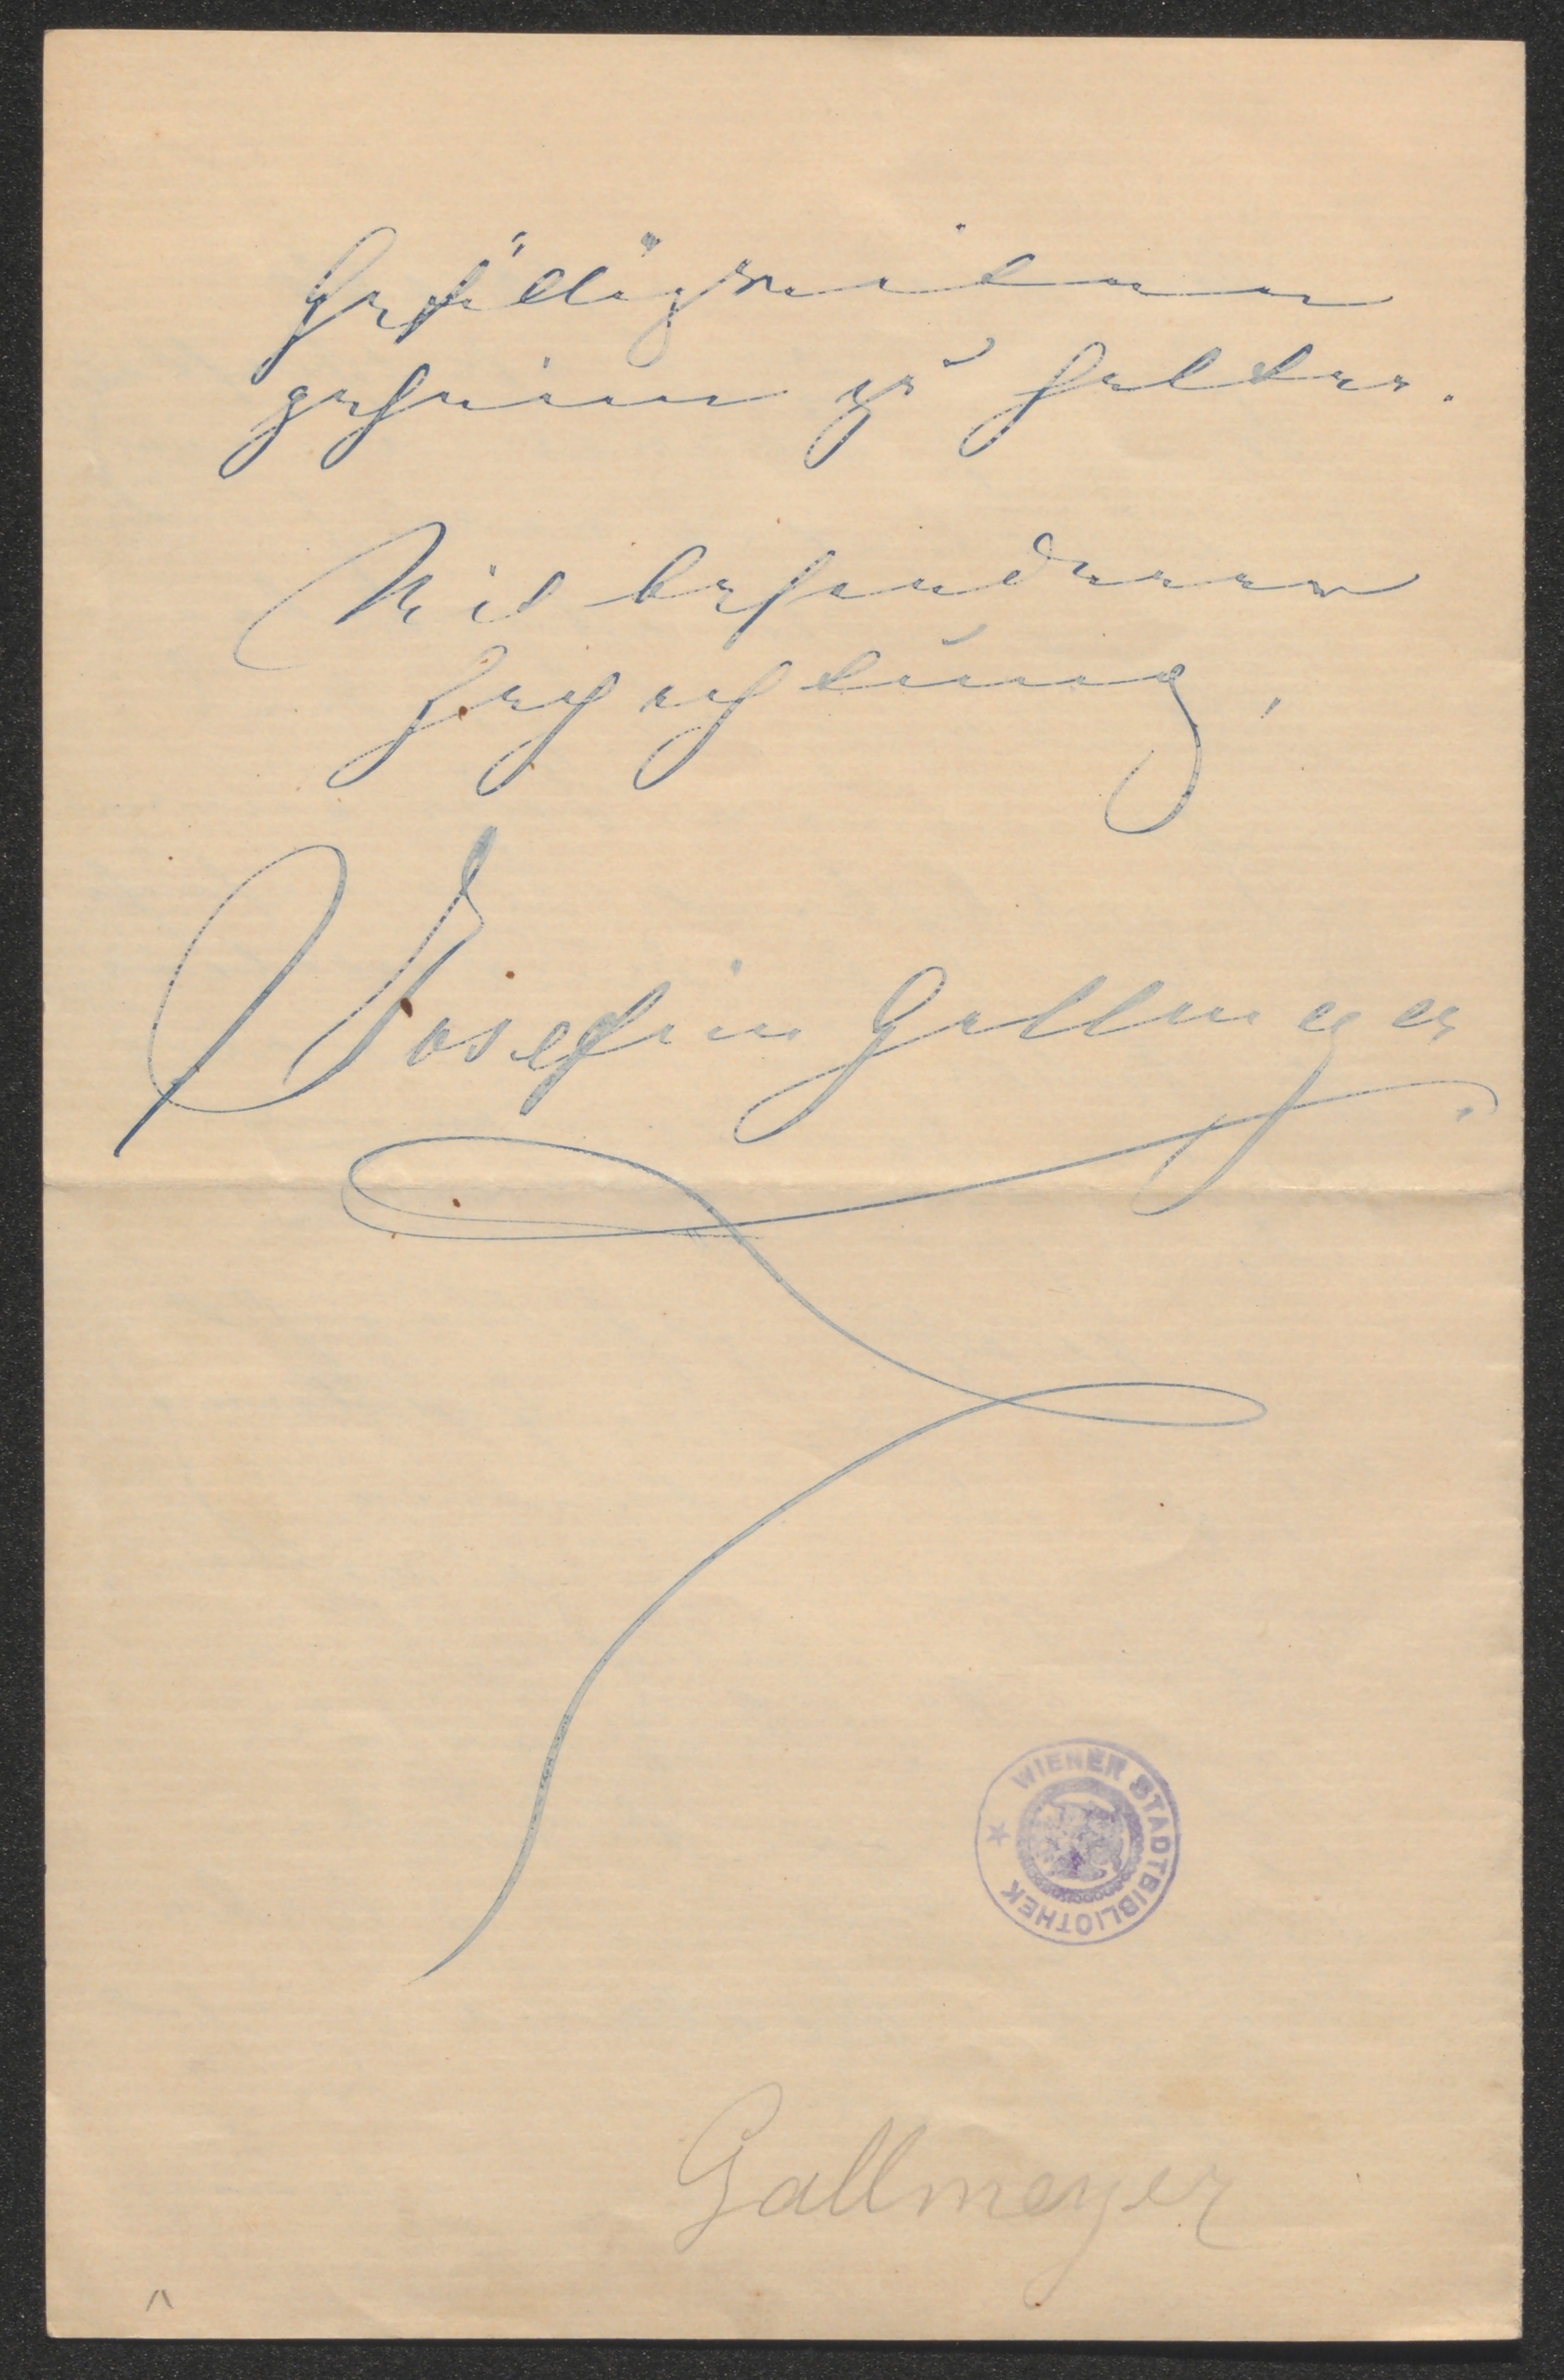 Gefälligkeiten
geheim zu halten.
Mit besonderer
Hochachtung,
Josefin Gallmeyer
WIENER STADTBIBLIOTHEK
Gallmeyer